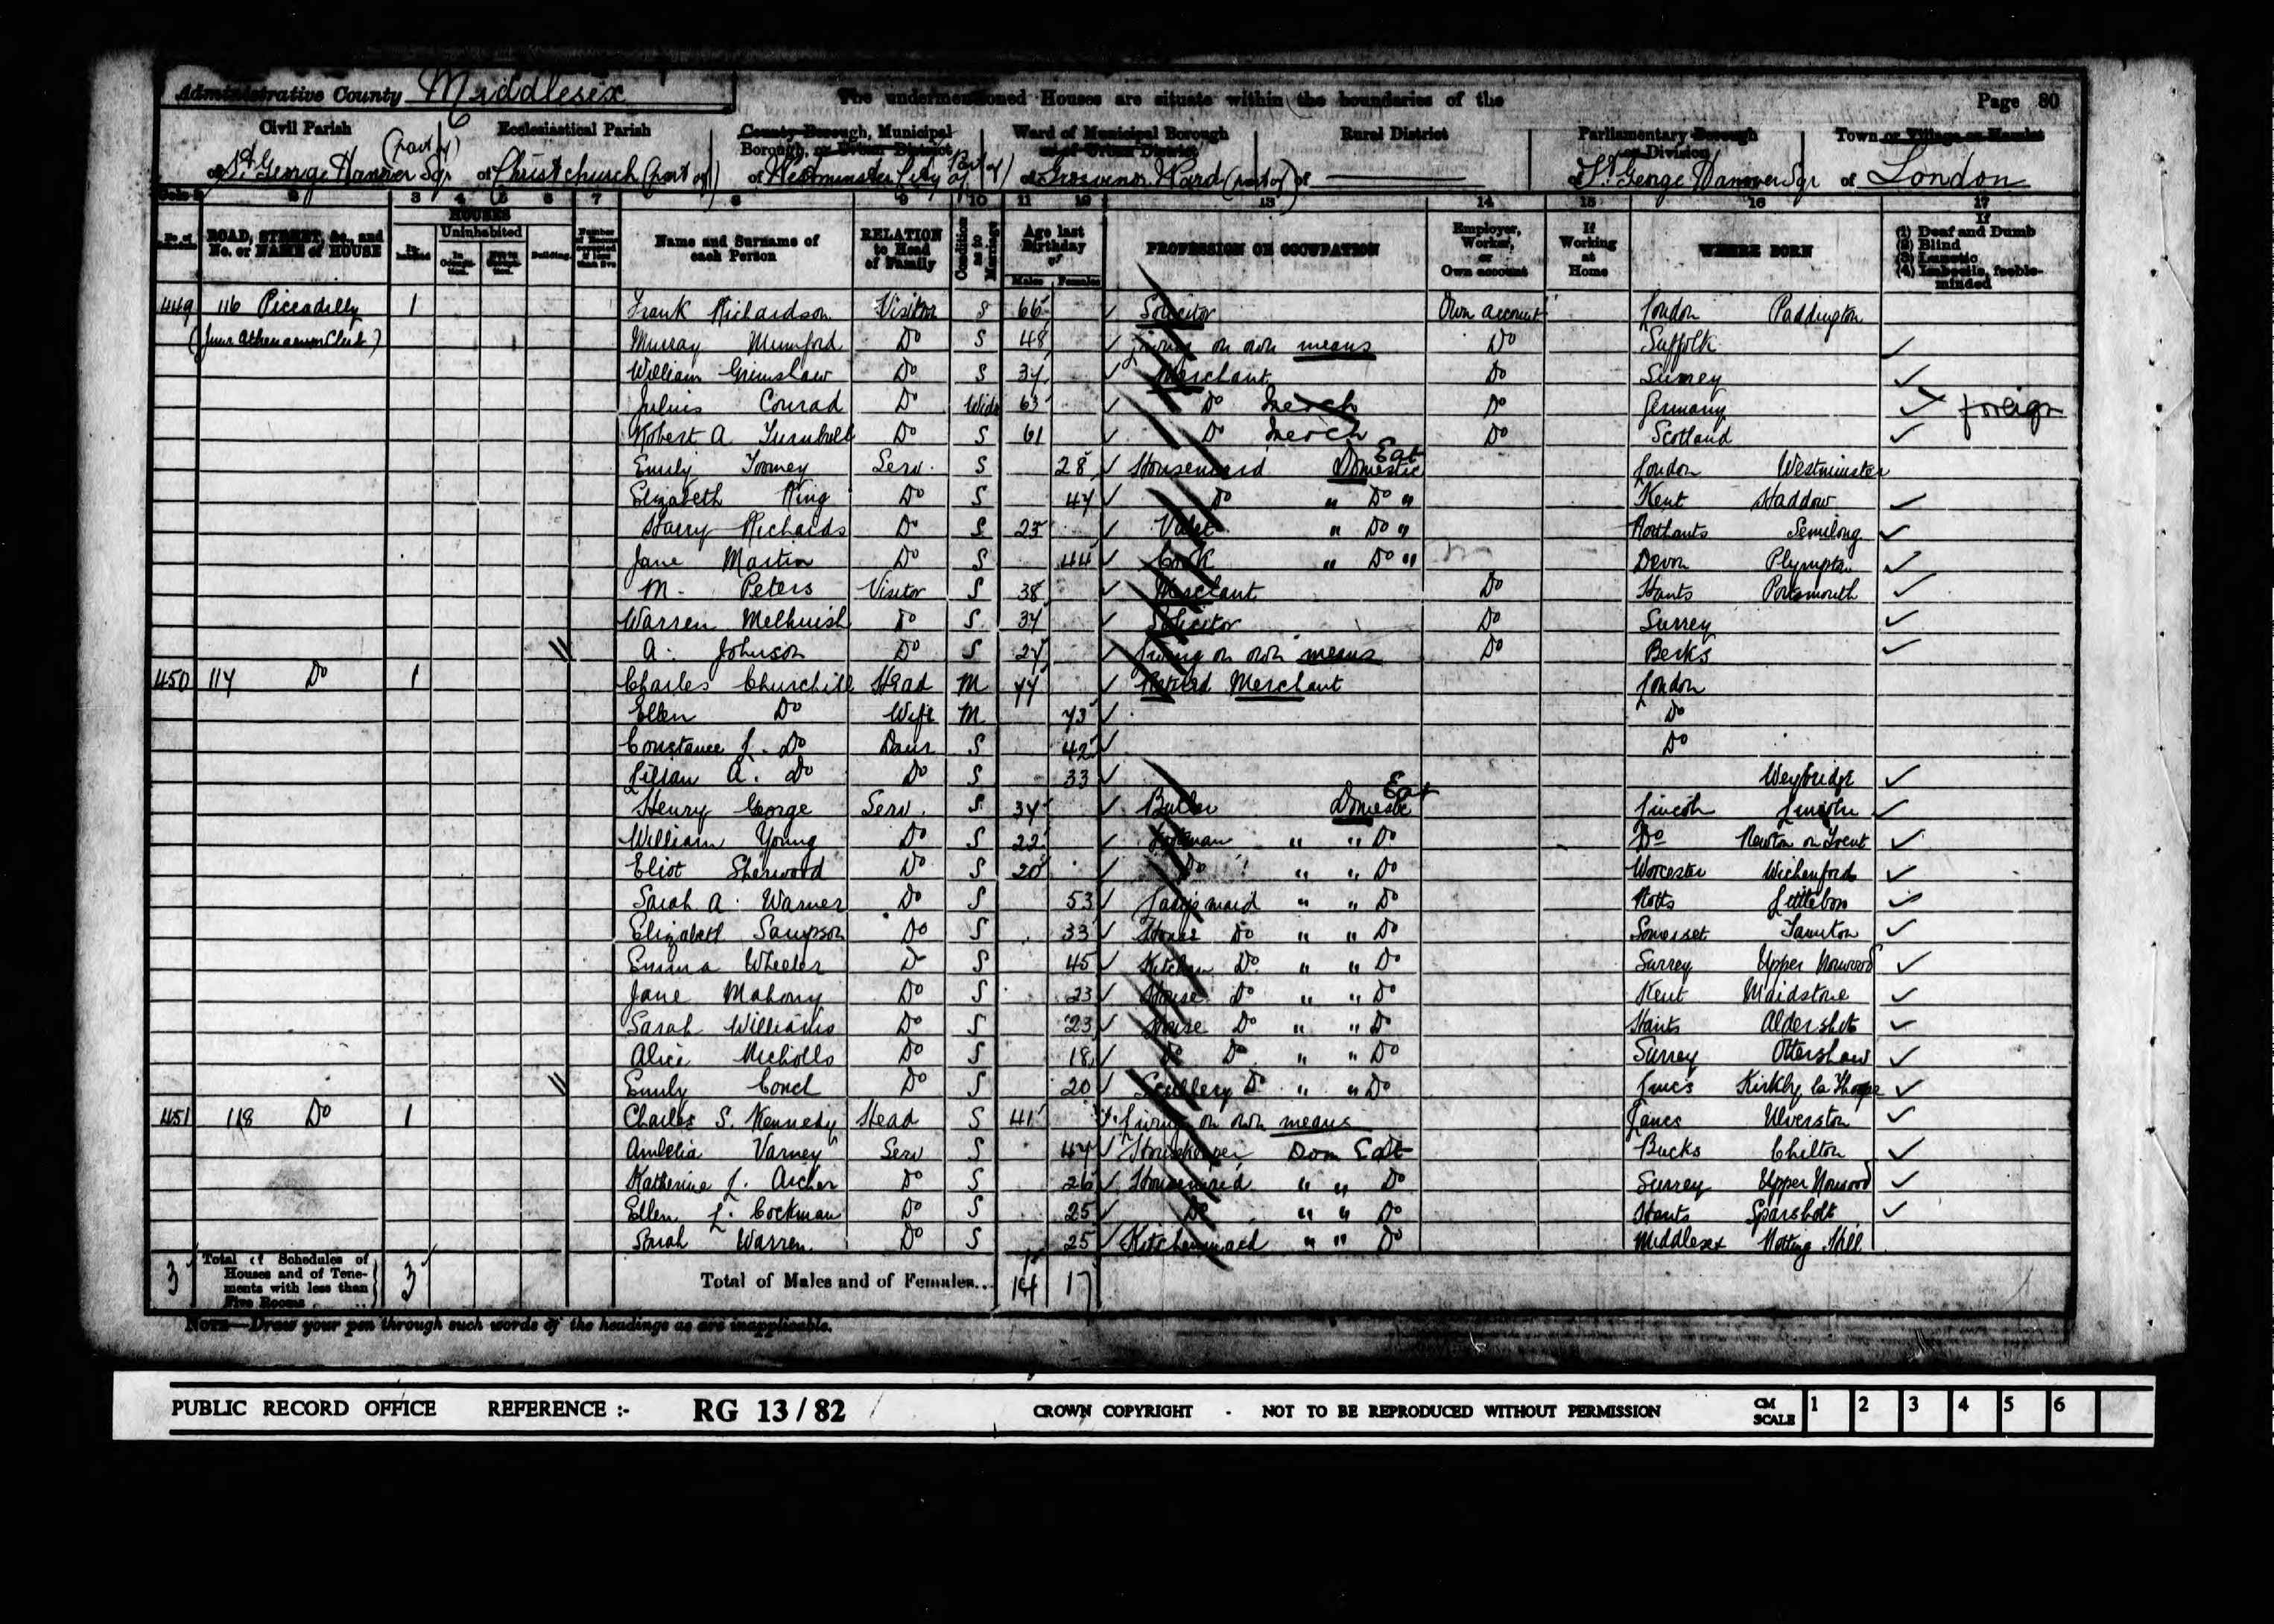 Administrative County Middlesex The undermentioned Houses are situate within the boundaries of the Page 80
Civil Parish Ecclesiastical Parish County Borough, Municipal Borough, or Urban District Ward of Municipal Borough or of Urban District Rural District Parliamentary Borough or Division Town or Village or Hamlet
of St. George Hanover Sqr (part of) of Christchurch (part of) of Westminster City of (Part of) of Grosvenor Ward (part of) of of St. George Hanover Sqr of London
2 3 4 5 6 7 8 9 10 11 12 13 14 15 16 17
ROAD, STREET, &c., and No. or NAME of HOUSE HOUSES Uninhabited Building Name and Surname of each Person RELATION to Head of Family Condition as to Marriage Age last Birthday of Males Females PROFESSION OR OCCUPATION Employer, Worker, or Own account If Working at Home WHERE BORN If (1) Deaf and Dumb (2) Blind (3) Lunatic (4) Imbecile, feeble-minded
449 116 Piccadilly 1 Frank Richardson Visitor S 66 Solicitor Own account London Paddington
(Junr Athenaeum Club) Murray Mumford Do S 48 Living on own means Do Suffolk
William Grimshaw Do S 37 Merchant Do Surrey
Julius Conrad Do Widr 63 Do Merch Do Germany foreign
Robert A Turnbull Do S 61 Do Merch Do Scotland
Emily Toomey Serv. S 28 Housemaid Domestic London Westminster
Elizabeth King Do S 47 Do " Do " Kent Haddow
Harry Richards Do S 25 Valet " Do " Northants Semilong
Jane Martin Do S 44 Cook " Do " Devon Plympton
M. Peters Visitor S 38 Merchant Do Hants Portsmouth
Warren Melhuish Do S. 37 Solicitor Do Surrey
A. Johnson Do S 27 Living on own means Do Berks
450 117 Do 1 Charles Churchill Head M 77 Retired Merchant London
Ellen Do Wife M 73 Do
Constance L. Do Daur S 42 Do
Lilian A. Do Do S 33 Weybridge
Henry George Serv. S 37 Butler Domestic Lincoln Lincoln
William Young Do S 22 Footman " " Do Do Newton on Trent
Eliot Sherwood Do S 20 Do " " Do Worcester Wichenford
Sarah A. Warner Do S 53 Ladysmaid " " Do Notts
Elizabeth Sampson Do S 33 House Do " " Do Somerset Taunton
Emma Wheeler Do S 45 Kitchen Do " " Do Surrey Upper Norwood
Jane Mahony Do S 23 House Do " " Do Kent Maidstone
Sarah Williams Do S 23 House Do " " Do Hants Aldershot
Alice Nicholls Do S 18 Do Do " " Do Surrey Ottershaw
Emily Couch Do S 20 Scullery Do " " Do Lincs Kirkby la Thorpe
451 118 Do 1 Charles S. Kennedy Head S 41 Living on own means Lancs Ulverston
Amelia Varney Serv S 47 Housekeeper Dom Bucks Chilton
Katherine L. Archer Do S 26 Housemaid " " Do Surrey Upper Norwood
Ellen L. Cockman Do S 25 Do " " Do Hants Sparsholt
Sarah Warren Do S 25 Kitchenmaid " " Do Middlesex Notting Hill
3 Total of Schedules of Houses and of Tenements with less than Five Rooms 3 Total of Males and of Females... 14 17
NOTE—Draw your pen through such words of the headings as are inapplicable.
PUBLIC RECORD OFFICE REFERENCE :- RG 13 / 82 CROWN COPYRIGHT - NOT TO BE REPRODUCED WITHOUT PERMISSION CM SCALE 1 2 3 4 5 6